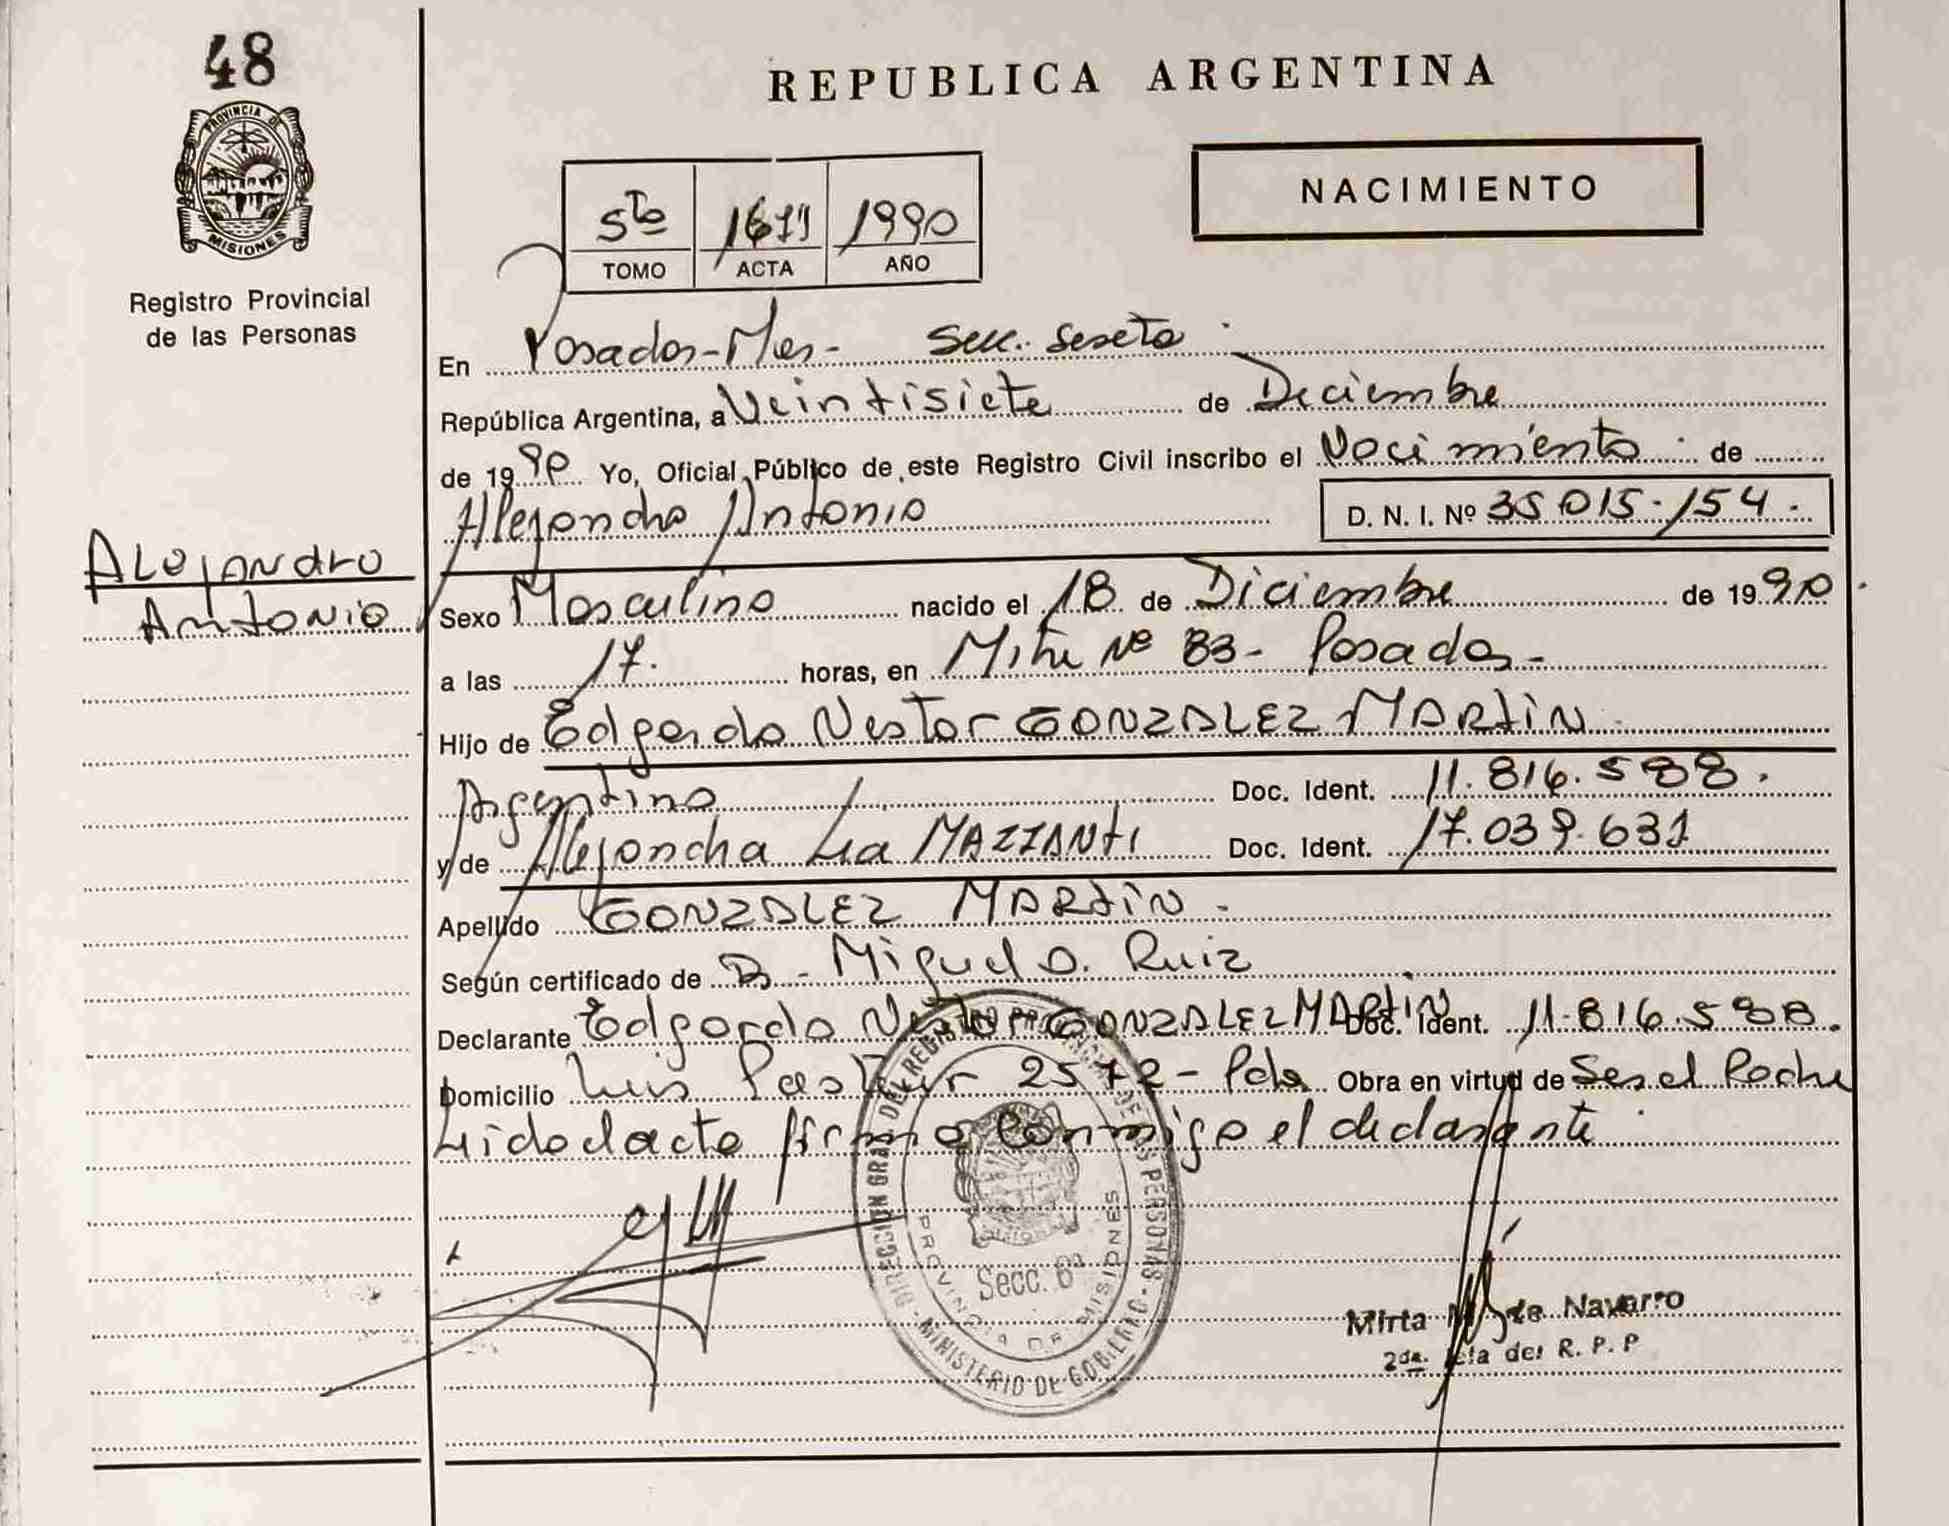 48
PROVINCIA DE
MISIONES
Registro Provincial
de las Personas
Alejandro
Antonio
REPUBLICA ARGENTINA
NACIMIENTO
5to 1611 1990
TOMO ACTA AÑO
En Posadas-Mnes- Secc. Sexta
República Argentina, a Veintisiete de Deciembre
de 1990 Yo, Oficial Público de este Registro Civil inscribo el Nacimiento de
Alejandro Antonio D. N. I. Nº 35.015.154.
Sexo Masculino nacido el 18 de Diciembre de 1990
a las 17. horas, en Mitre Nº 83- Posadas-
Hijo de Edgardo Nestor GONZALEZ MARTÍN
Argentino Doc. Ident. 11.816.588.
y de Alejandra Lia MAZZANTI Doc. Ident. 17.039.631
Apellido GONZALEZ MARTÍN -
Según certificado de D- Miguel O. Ruiz
Declarante Edgardo Nestor GONZALEZ MARTÍN Doc. Ident. 11.816.588.
Domicilio Luis Pasteur 2572- Pdas Obra en virtud de Ser el Padre
Leido el acto firma conmigo el declarante
DIRECCION GRAL. DEL REGISTRO PROVINCIAL DE LAS PERSONAS
PROVINCIA DE MISIONES
Secc. 6ª
MINISTERIO DE GOBIERNO
Mirta de Navarro
2da. Jefa del R. P. P